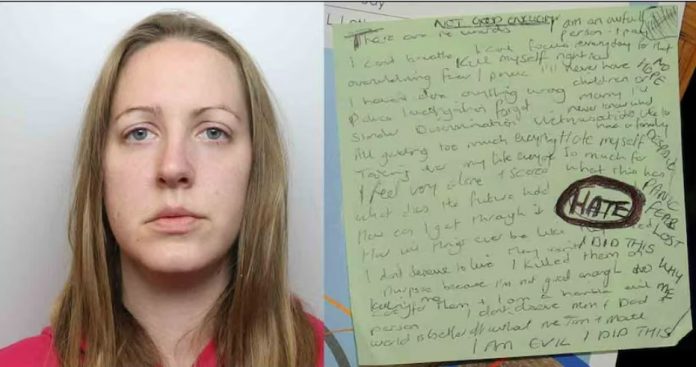 NOT GOOD ENOUGH
There are no words I am an awful
person - I pay
I can't breathe I can't focus everyday for that
Kill myself right now
overwhelming fear / panic I'll never have NO HOPE
children or
I haven't done anything wrong marry I'll
Police investigation forget never know what
Slander Discrimination Victimisation like to
have a family
All getting too much everything Hate myself DESPAIR
Taking over my life so much for
I feel very alone + scared what this has PANIC
What does the future hold HATE FEAR
How can I get through it LOST
How will things ever be like they used
I DID THIS
I don't deserve to live I killed them on WHY
purpose because I'm not good enough ME
care for them + I am a horrible evil
person I don't deserve Mum + Dad
world is better off without me
I AM EVIL I DID THIS